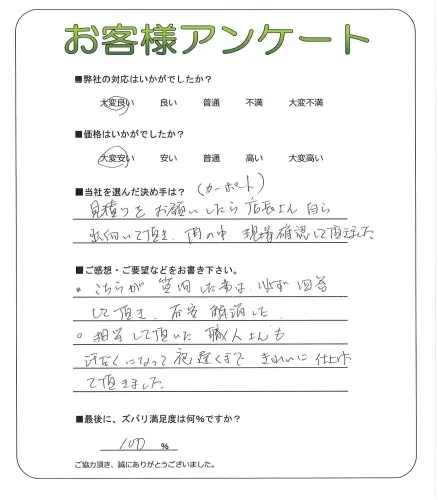 お客様アンケート
■弊社の対応はいかがでしたか？
大変良い 良い 普通 不満 大変不満
■価格はいかがでしたか？
大変安い 安い 普通 高い 大変高い
■当社を選んだ決め手は？ (カーポート)
見積りをお願いしたら店長さん自ら
出向いて頂き、雨の中 現場確認して頂きました
■ご感想・ご要望などをお書き下さい。
。こちらが 質問した事は、必ず 回答
して頂き、不安 解消した。
。担当して頂いた 職人さんも
汗だくになって 夜遅くまで きれいに 仕上げ
て頂きました
■最後に、ズバリ満足度は何％ですか？
100 %
ご協力頂き、誠にありがとうございました。